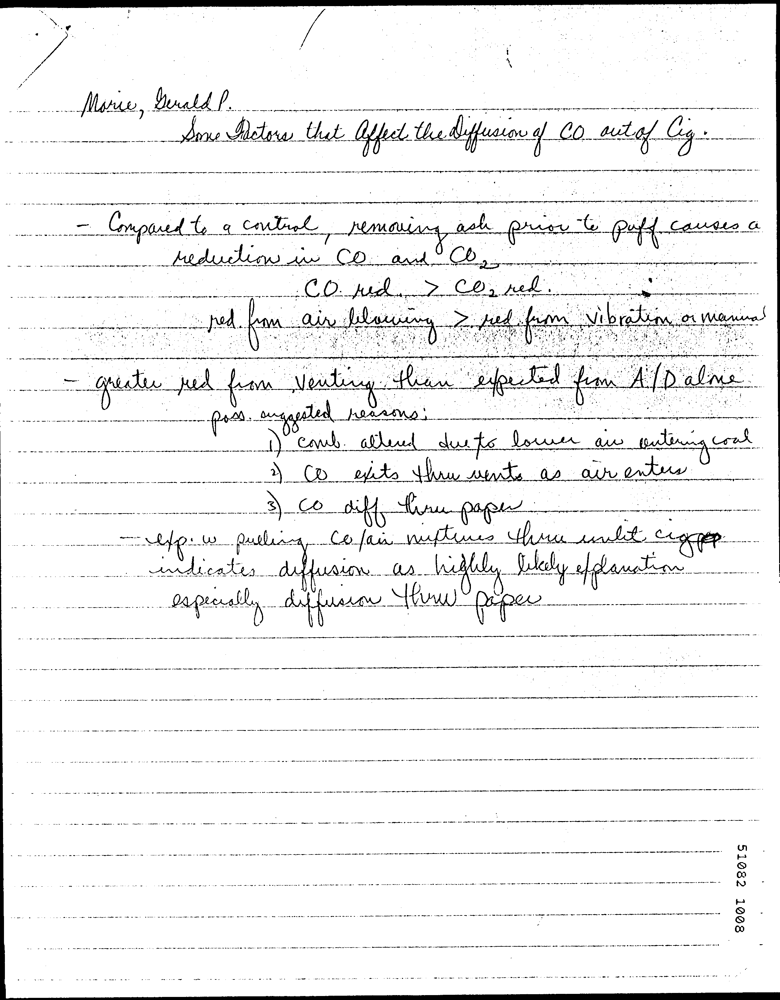 Morie, Gerald P.
Some Factors that Affect the Diffusion of CO out of Cig.
- Compared to a control, removing ash prior to puff causes a
reduction in CO and CO2
CO red. > CO2 red.
red. from air blowing > red from vibration or manual
- greater red from venting than expected from A/D alone
poss. suggested reasons:
1) comb. altered due to lower air entering coal
2) CO exits thru vents as air enters
3) CO diff thru paper
- exp. w pulling CO/air mixtures thru unlit cig
indicates diffusion as highly likely explanation
especially diffusion thru paper
51082 1008